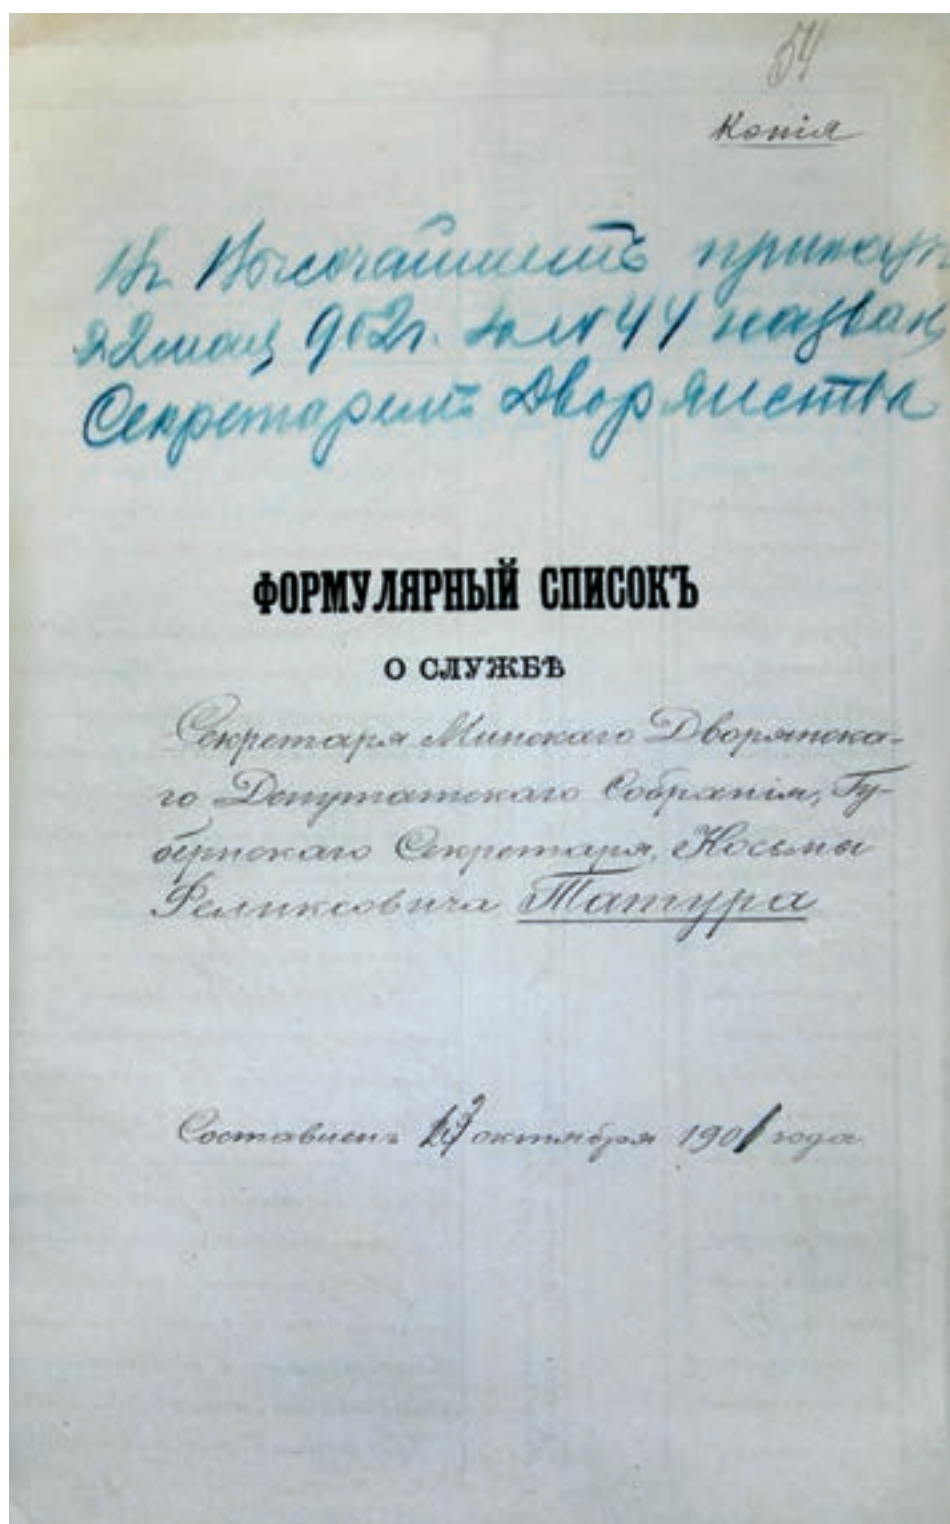 54
Копія
Въ Высочайшемъ приказѣ
22 мая 902 г. за № 44 назван
Секретаремъ Дворянства
ФОРМУЛЯРНЫЙ СПИСОКЪ
О СЛУЖБѢ
Секретаря Минскаго Дворянска-
го Депутатскаго Собранія, Гу-
бернскаго Секретаря, Косьмы
Феликсовича Татура
Составленъ октября 1901 года